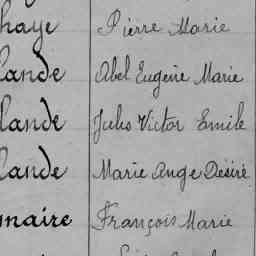 haye Pierre Marie
lande Abel Eugène Marie
lande Jules Victor Emile
lande Marie Ange Désiré
maire François Marie